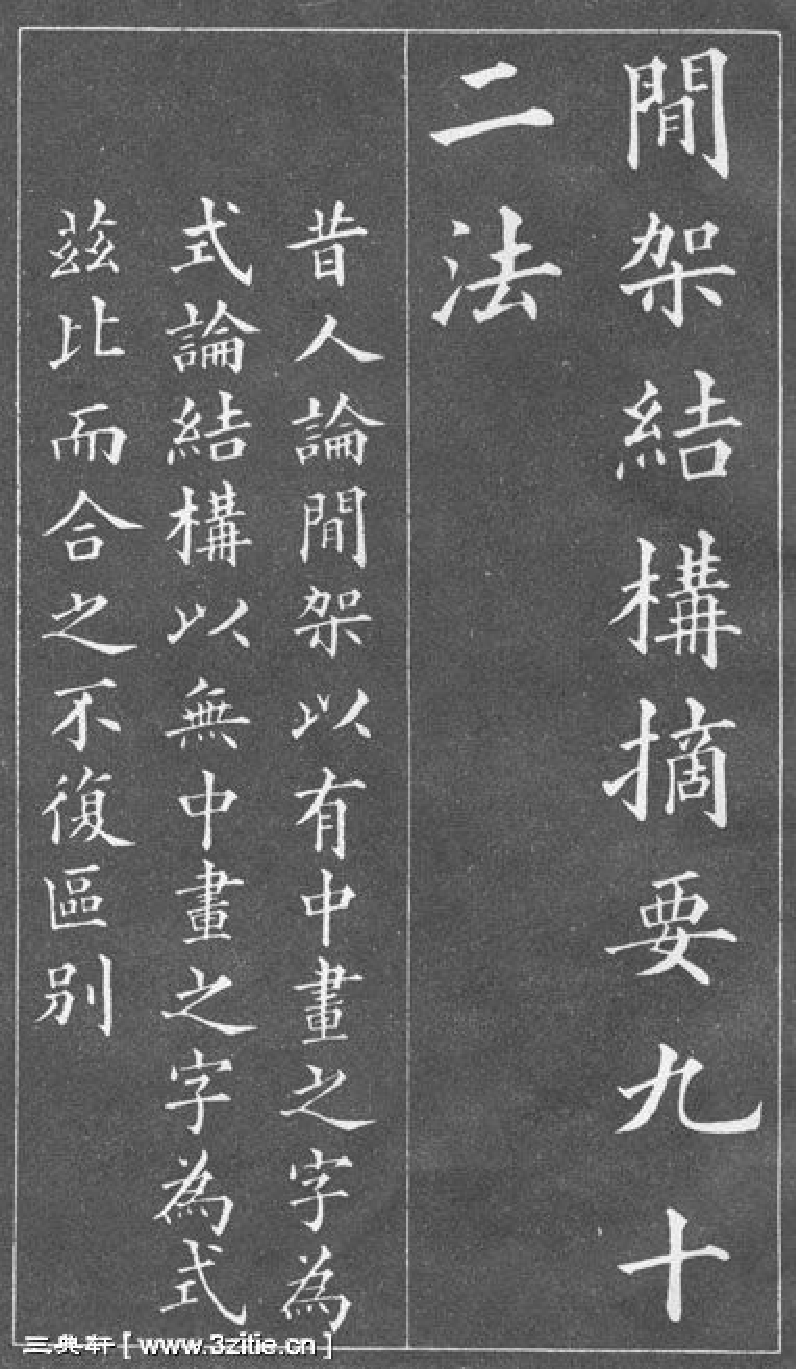 閒架結構摘要九十
二法
昔人論閒架以有中畫之字為
式論結構以無中畫之字為式
茲比而合之不復區别
三典轩[www.3zitie.cn]